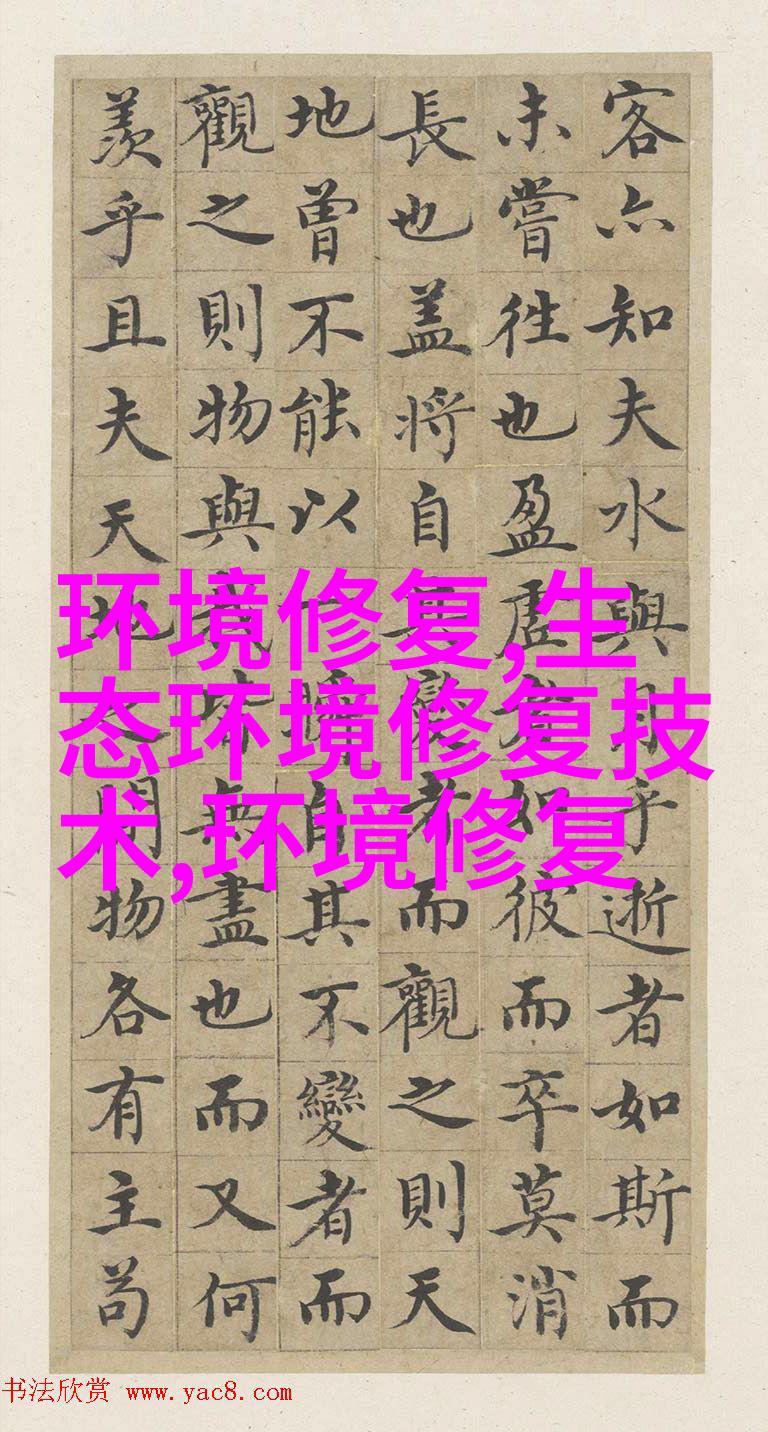 客亦知夫水與月乎逝者如斯而
未嘗往也盈虛者如彼而卒莫消
長也盖将自其變者而觀之則天
地曾不能以一瞬自其不變者而
觀之則物與我皆無盡也而又何
羨乎且夫天地之間物各有主苟
环境修复,生
态环境修复技
术,环境修复
书法欣赏 www.yac8.com